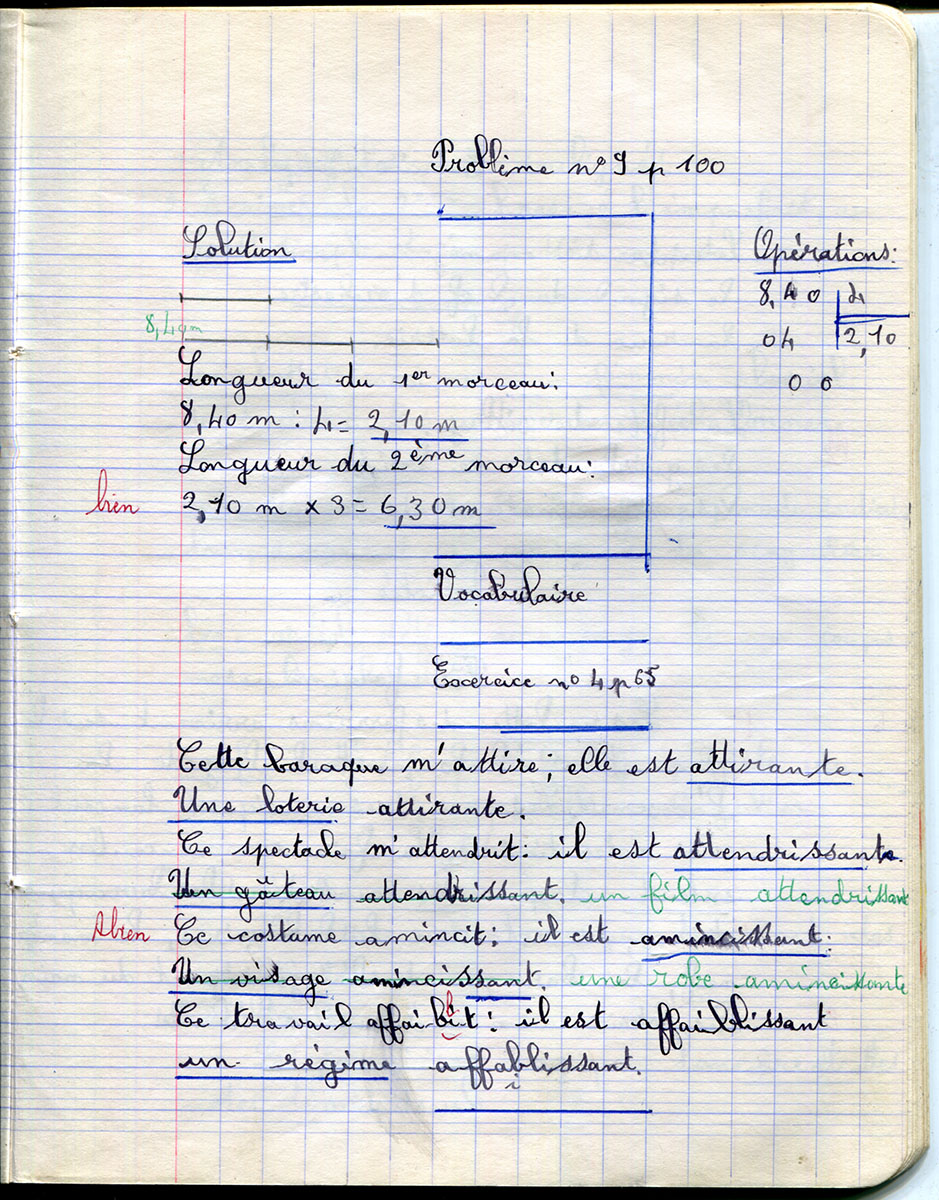 Problème n° 9 p 100
Solution
Opérations:
8,40 4
8,4 m
04 2,10
00
Longueur du 1er morceau:
8,40 m : 4 = 2,10 m
Longueur du 2ème morceau:
bien
2,10 m x 3 = 6,30 m
Vocabulaire
Exercice n° 4 p 65
Cette baraque m'attire; elle est attirante.
Une loterie attirante.
Ce spectacle m'attendrit: il est attendrissant.
Un gâteau attendrissant. un film attendrissant
ABien Ce costume amincit: il est amincissant.
Un visage amincissant. une robe amincissante
Ce travail affaiblit: il est affaiblissant
un régime affaiblissant.